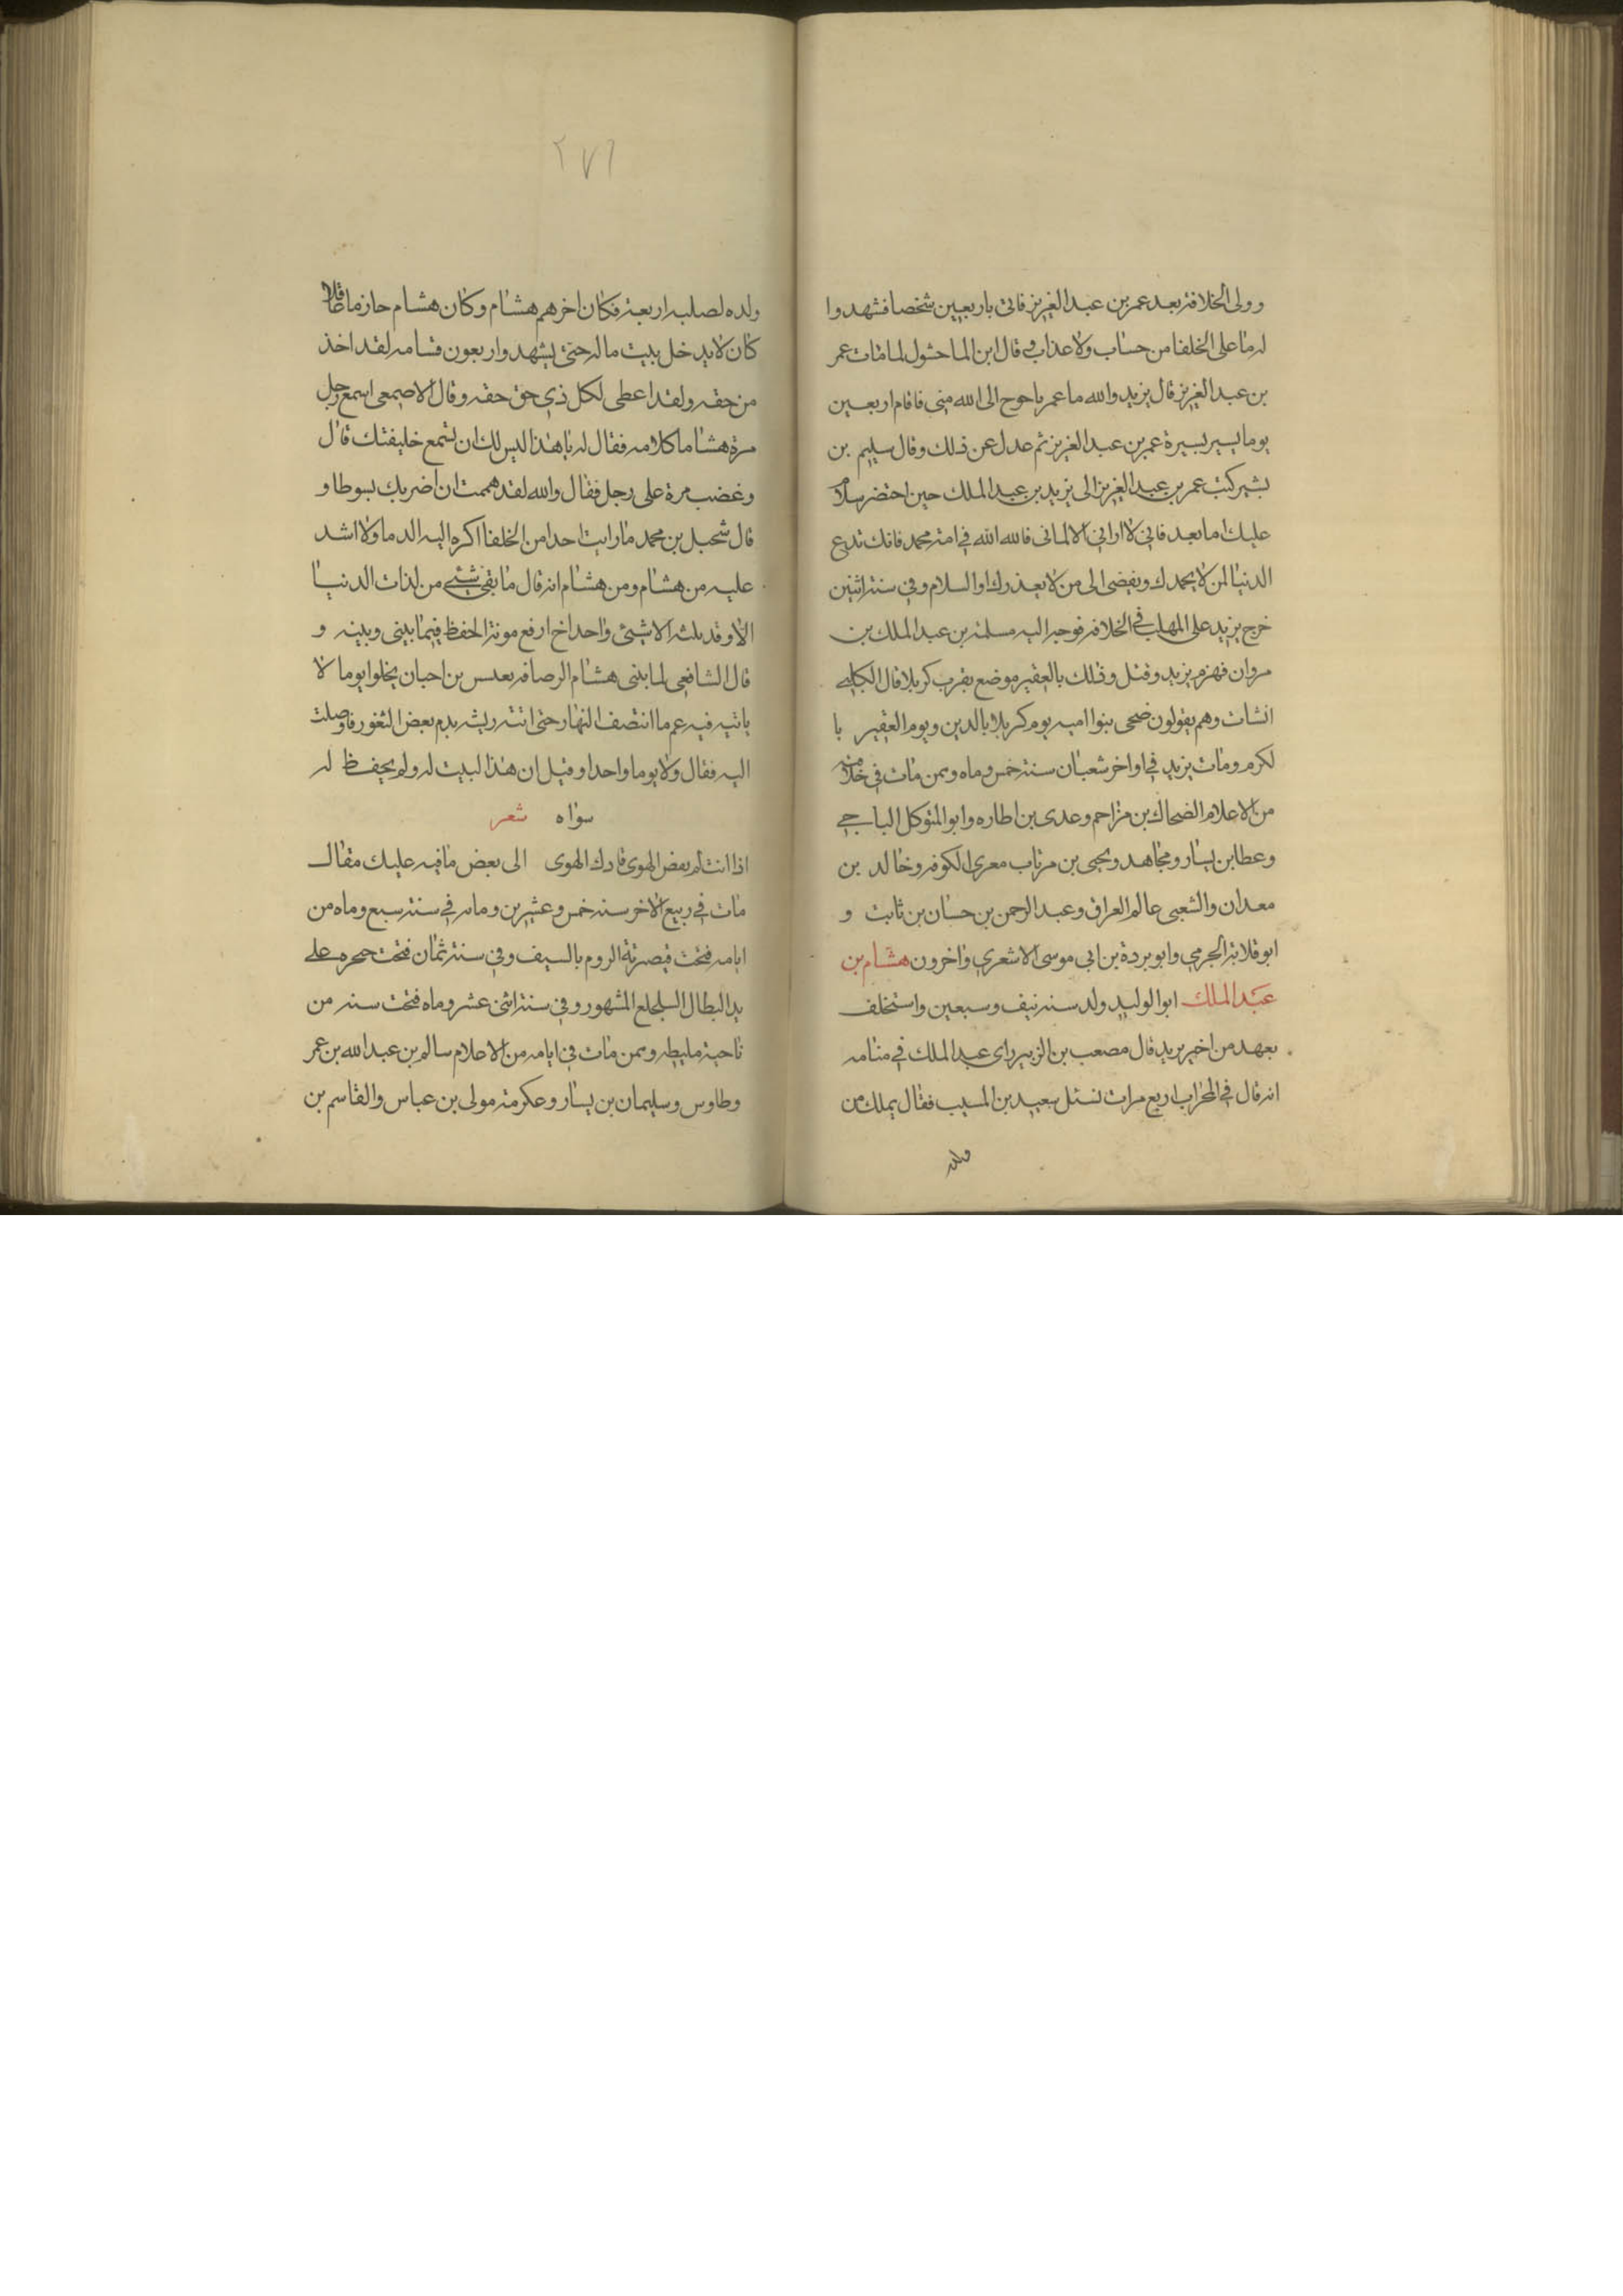 وولى الخلافة بعد عمر بن عبد العزيز فاتى باربعين شخصا فشهدوا
له ما على الخلفا من حساب ولا عذاب و قال ابن الماحشول لما مات عمر
بن عبد العزيز قال يزيد والله ما عمر باحوح الى الله منى فاقام اربعين
يوما يسير بسيرة عمر بن عبد العزيز ثم عدل عن ذلك وقال سليم بن
بشير كتب عمر بن عبد العزيز الى يزيد بن عبد الملك حين احتضر سلام
عليك اما بعد فانى لا ارانى الا لمانى فالله الله فى امة محمد فانك تدع
الدنيا لمن لا يحمدك ويفضى الى من لا يعذرك والسلام وفى سنة اثنين
خرج يزيد على المهلب فى الخلافه فوجه اليه مسلمة بن عبد الملك بن
مروان فهزم يزيد وقتل وذلك بالعقير موضع بقرب كربلا قال الكلبى
انشات وهم يقولون ضحى بنوا اميه يوم كربلا بالدين ويوم العقير با
لكرم ومات يزيد فى اواخر شعبان سنة خمس وماه وممن مات فى خلافته
من الاعلام الضحاك بن مزاحم وعدى بن اطاره وابو المتوكل الباجى
وعطا بن يسار ومجاهد ويحيى بن مرتاب معرى الكوفه وخالد بن
معدان والشعبى عالم العراق وعبد الرحمن بن حسان بن ثابت و
ابو قلابة الجرمي وابو بردة بن ابى موسى الاشعري واخرون هشام بن
عبد الملك ابو الوليد ولد سنه نيف وسبعين واستخلف
بعهد من اخيه يزيد قال مصعب بن الزبير راى عبد الملك فى منامه
انه قال فى المحراب اربع مرات نسئل سعيد بن المسيب فقال يملك من
ولده
٢٧٦
ولده لصلبه اربعة فكان اخرهم هشام وكان هشام حازما عاقلا
كان لا يدخل بيت ماله حتى يشهد واربعون قسامه لقد اخذ
من حقه ولقد اعطى لكل ذي حق حقه وقال الاصمعى اسمع رجل
مرة هشاما كلامه فقال له يا هذا ليس لك ان تسمع خليفتك قال
وغضب مرة على رجل فقال والله لقد هممت ان اضربك بسوطا و
قال شحبل بن محمد ما رايت احدا من الخلفا اكره اليه الدما ولا اشد
عليه من هشام ومن هشام انه قال ما بقى شيئى من لذات الدنيا
الا وقد بلته الا شيئى واحد اخ ارفع مونة الحفظ فيما بينى وبينه و
قال الشافعى لما بنى هشام الرصافه بعدس بن احبان يخلوا يوما لا
ياتيه فيه عم ما انتصف النهار حتى اتته ريشه بدم بعض الثغور فاوصلت
اليه فقال ولا يوما واحدا وقيل ان هذا البيت له ولم يحفظ له
سواه شعر
اذا انت لم بعض الهوى قادك الهوى الى بعض ما فيه عليك مقال
مات فى ربيع الاخر سنه خمس وعشرين وماه فى سنة سبع وماه من
ايامه فتحت قيصرية الروم بالسيف وفى سنة ثمان فتحت حجره على
يد البطال السلجلع المشهور وفى سنة اثنى عشر وماه فتحت سنه من
ناحية مليطه وممن مات فى ايامه من الاعلام سالم بن عبد الله بن عمر
وطاوس وسليمان بن يسار وعكرمة مولى بن عباس والقاسم بن